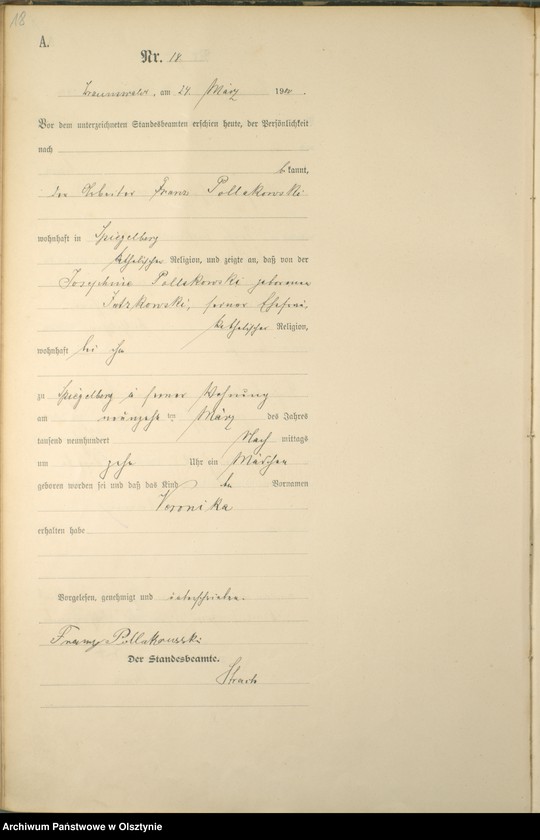 18
A.
Nr. 18.
Braunswalde, am 24. März 1900.
Vor dem unterzeichneten Standesbeamten erschien heute, der Persönlichkeit
nach
bekannt,
der Arbeiter Franz Pollakowski
wohnhaft in Spiegelberg
katholischer Religion, und zeigte an, daß von der
Josephine Pollakowski geborenen
seiner Ehefrau,
katholischer Religion,
wohnhaft bei ihm
zu Spiegelberg in seiner Wohnung
am neunzehnten März des Jahres
tausend neunhundert Nach mittags
um zehn Uhr ein Mädchen
geboren worden sei und daß das Kind den Vornamen
Veronika
erhalten habe
Vorgelesen, genehmigt und unterschrieben.
Franz Pollakowski
Der Standesbeamte.
Archiwum Państwowe w Olsztynie